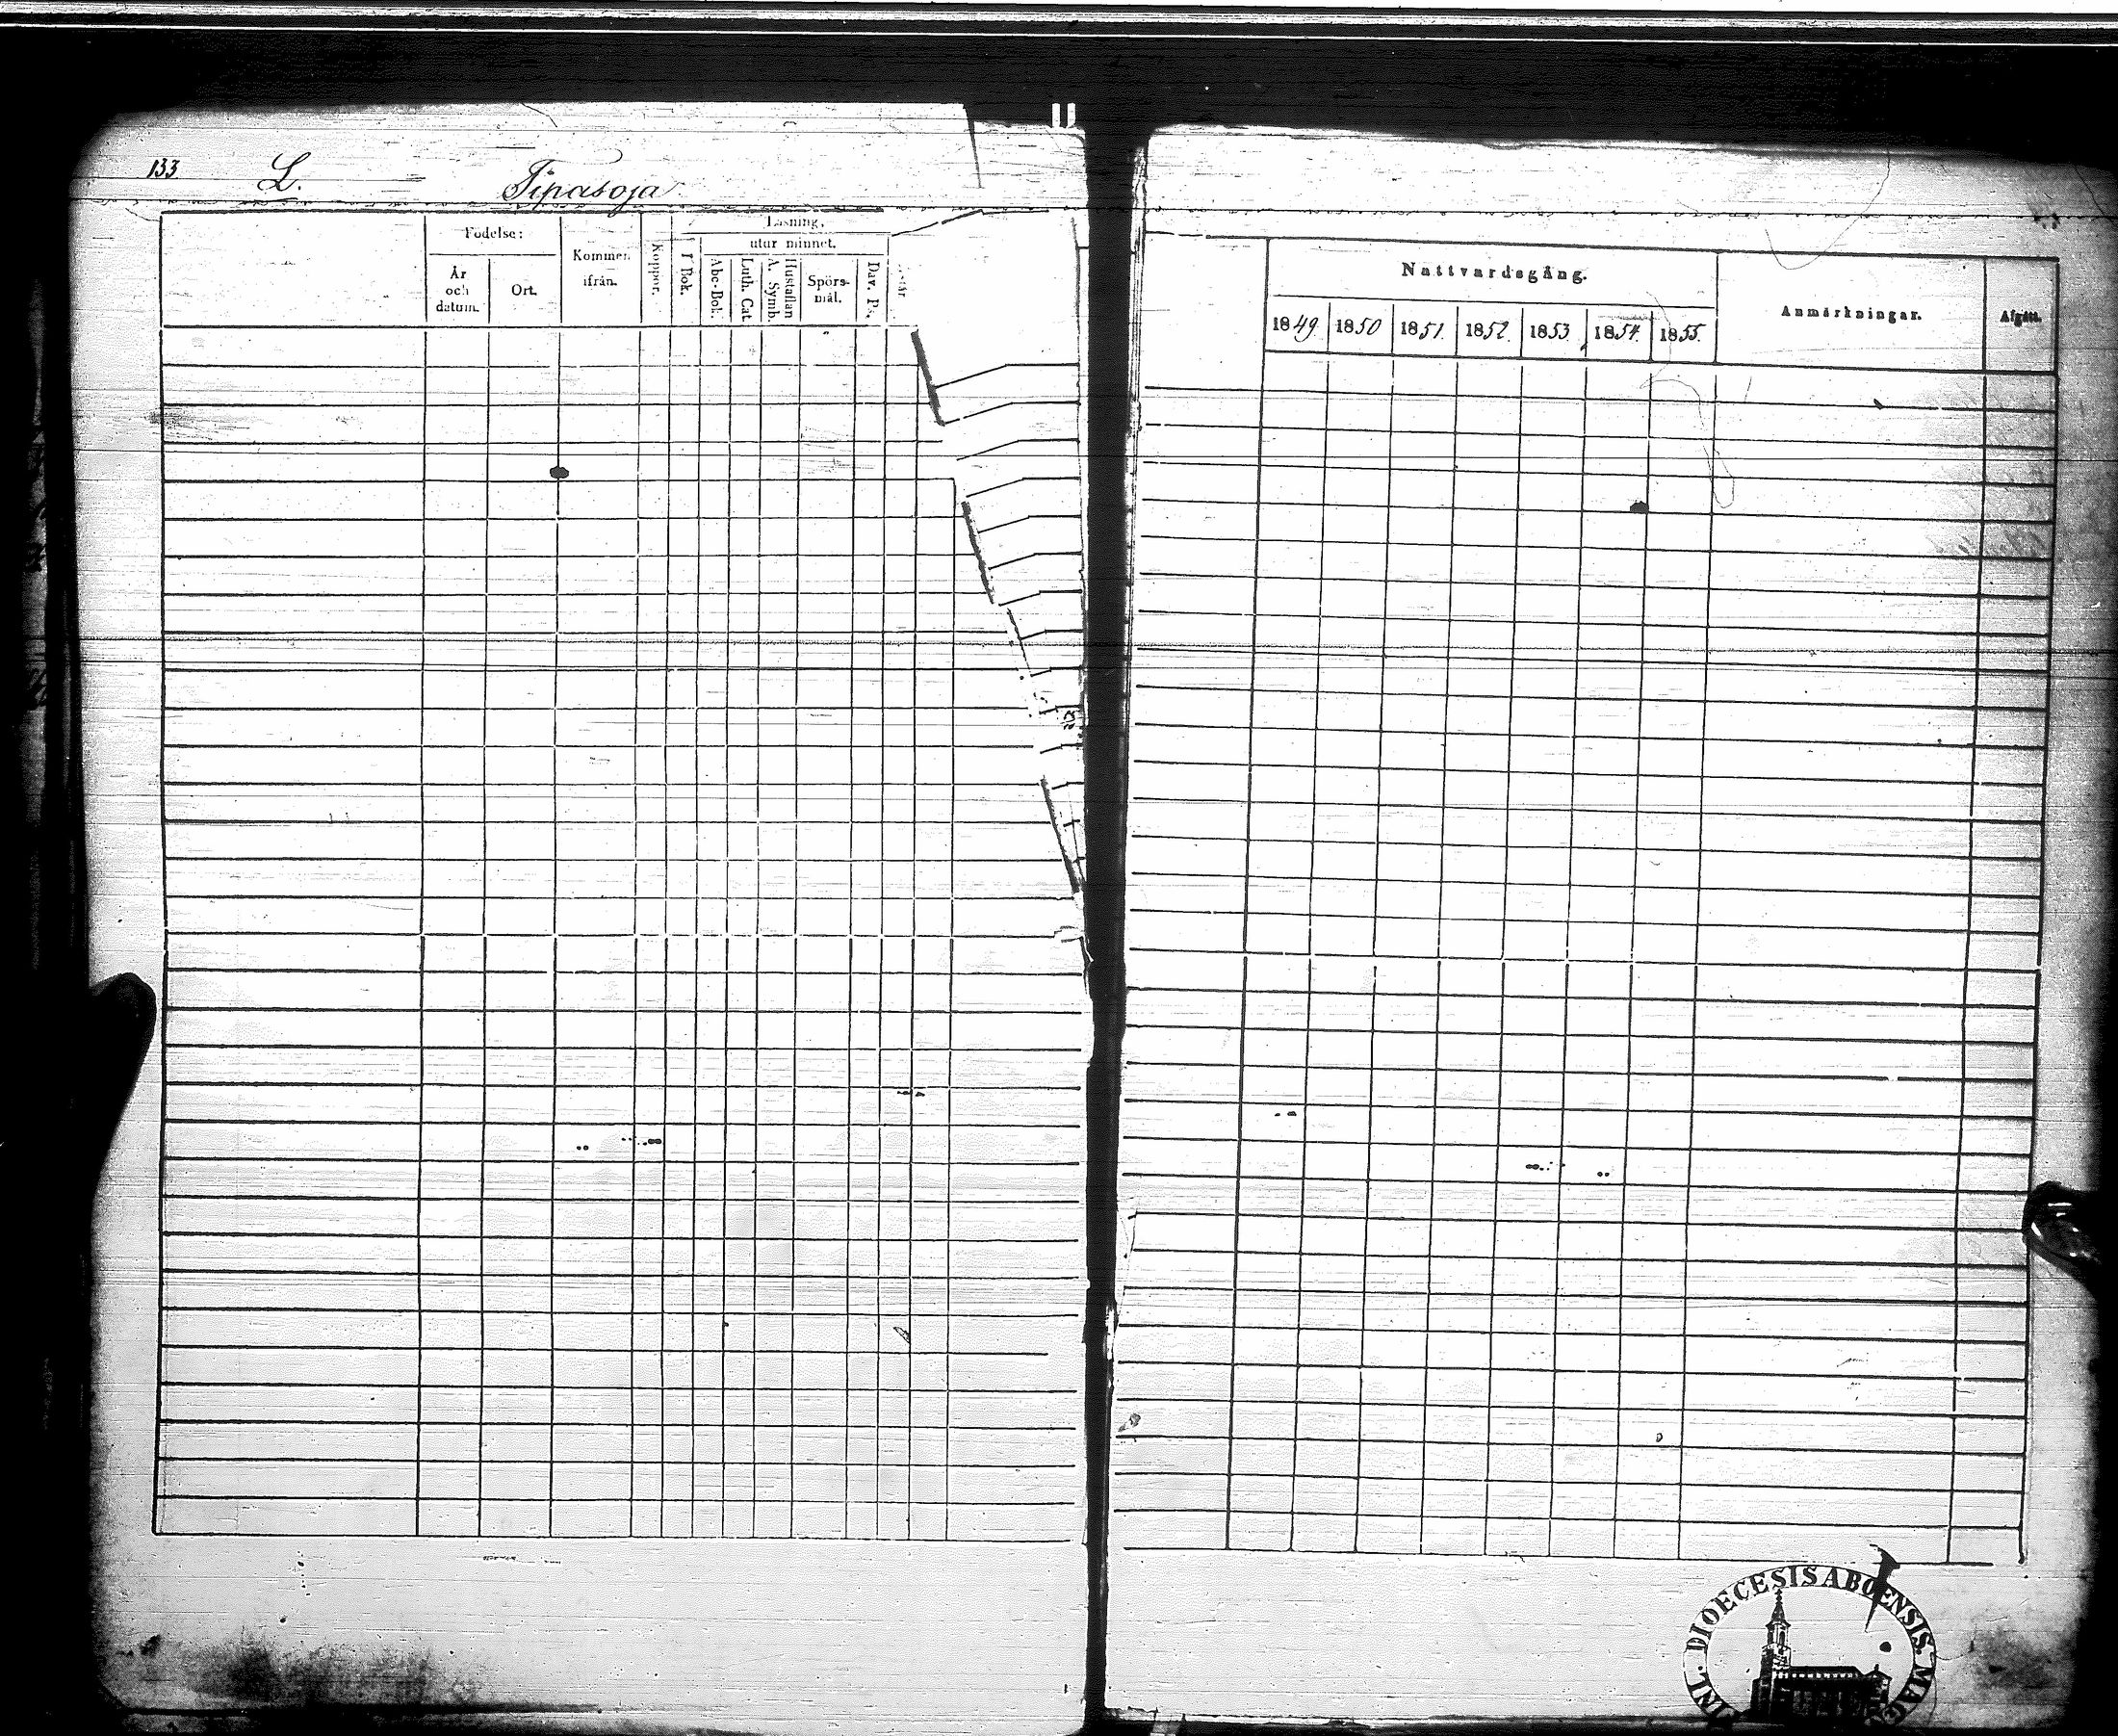 133 L. Tipasoja
Födelse:
År och datum.
Ort.
Kommen ifrån.
Koppor.
Läsning,
I Bok.
utur minnet.
Abc-Bok.
Luth. Cat.
Hustaflan A. Symb.
Spörs-mål.
Dav. Ps.
Nattvardsgång.
1849. 1850 1851. 1852. 1853. 1854. 1855.
Anmärkningar.
Afgått.
DIOECESIS ABOENSIS MAG